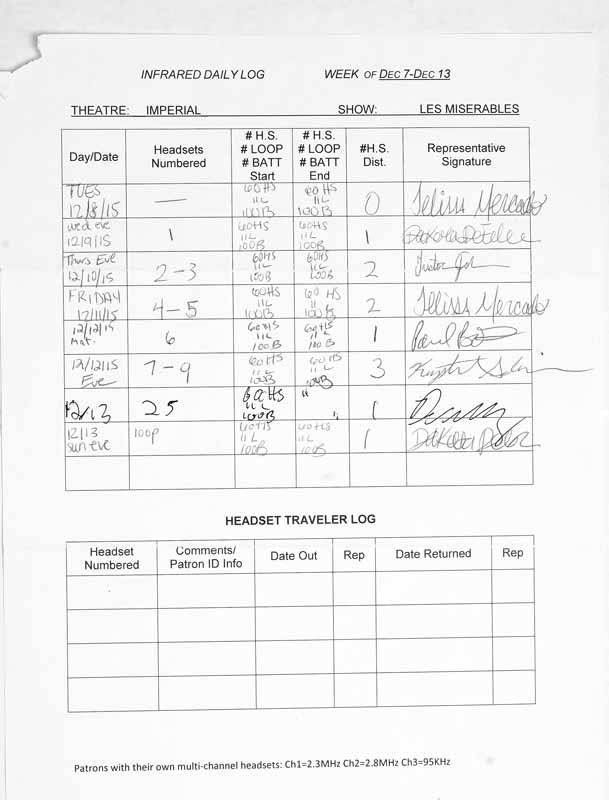 INFRARED DAILY LOG WEEK OF DEC 7-DEC 13
THEATRE: IMPERIAL SHOW: LES MISERABLES
Day/Date
Headsets
Numbered
# H.S.
# LOOP
# BATT
Start
# H.S.
# LOOP
# BATT
End
#H.S.
Dist.
Representative
Signature
TUES
12/8/15
—
60HS
11L
100B
60HS
11L
100B
0
Mercado
wed eve
12/9/15
1
60HS
11L
100B
60HS
11L
100B
1
Dakota
Thurs Eve
12/10/15
2-3
60HS
11L
100B
60HS
11L
100B
2
FRIDAY
12/11/15
4-5
60HS
11L
100B
60 HS
11 L
100 B
2
Mercado
12/12/15
mat.
6
60HS
11L
100B
60HS
11L
100B
1
Paul
12/12/15
Eve
7-9
60HS
11L
100B
60HS
11L
100B
3
12/13
25
60HS
11L
100B
"
"
1
12/13
sun eve
100p
60HS
11L
100B
60HS
11L
100B
1
Dakota
HEADSET TRAVELER LOG
Headset
Numbered
Comments/
Patron ID Info
Date Out
Rep
Date Returned
Rep
Patrons with their own multi-channel headsets: Ch1=2.3MHz Ch2=2.8MHz Ch3=95KHz